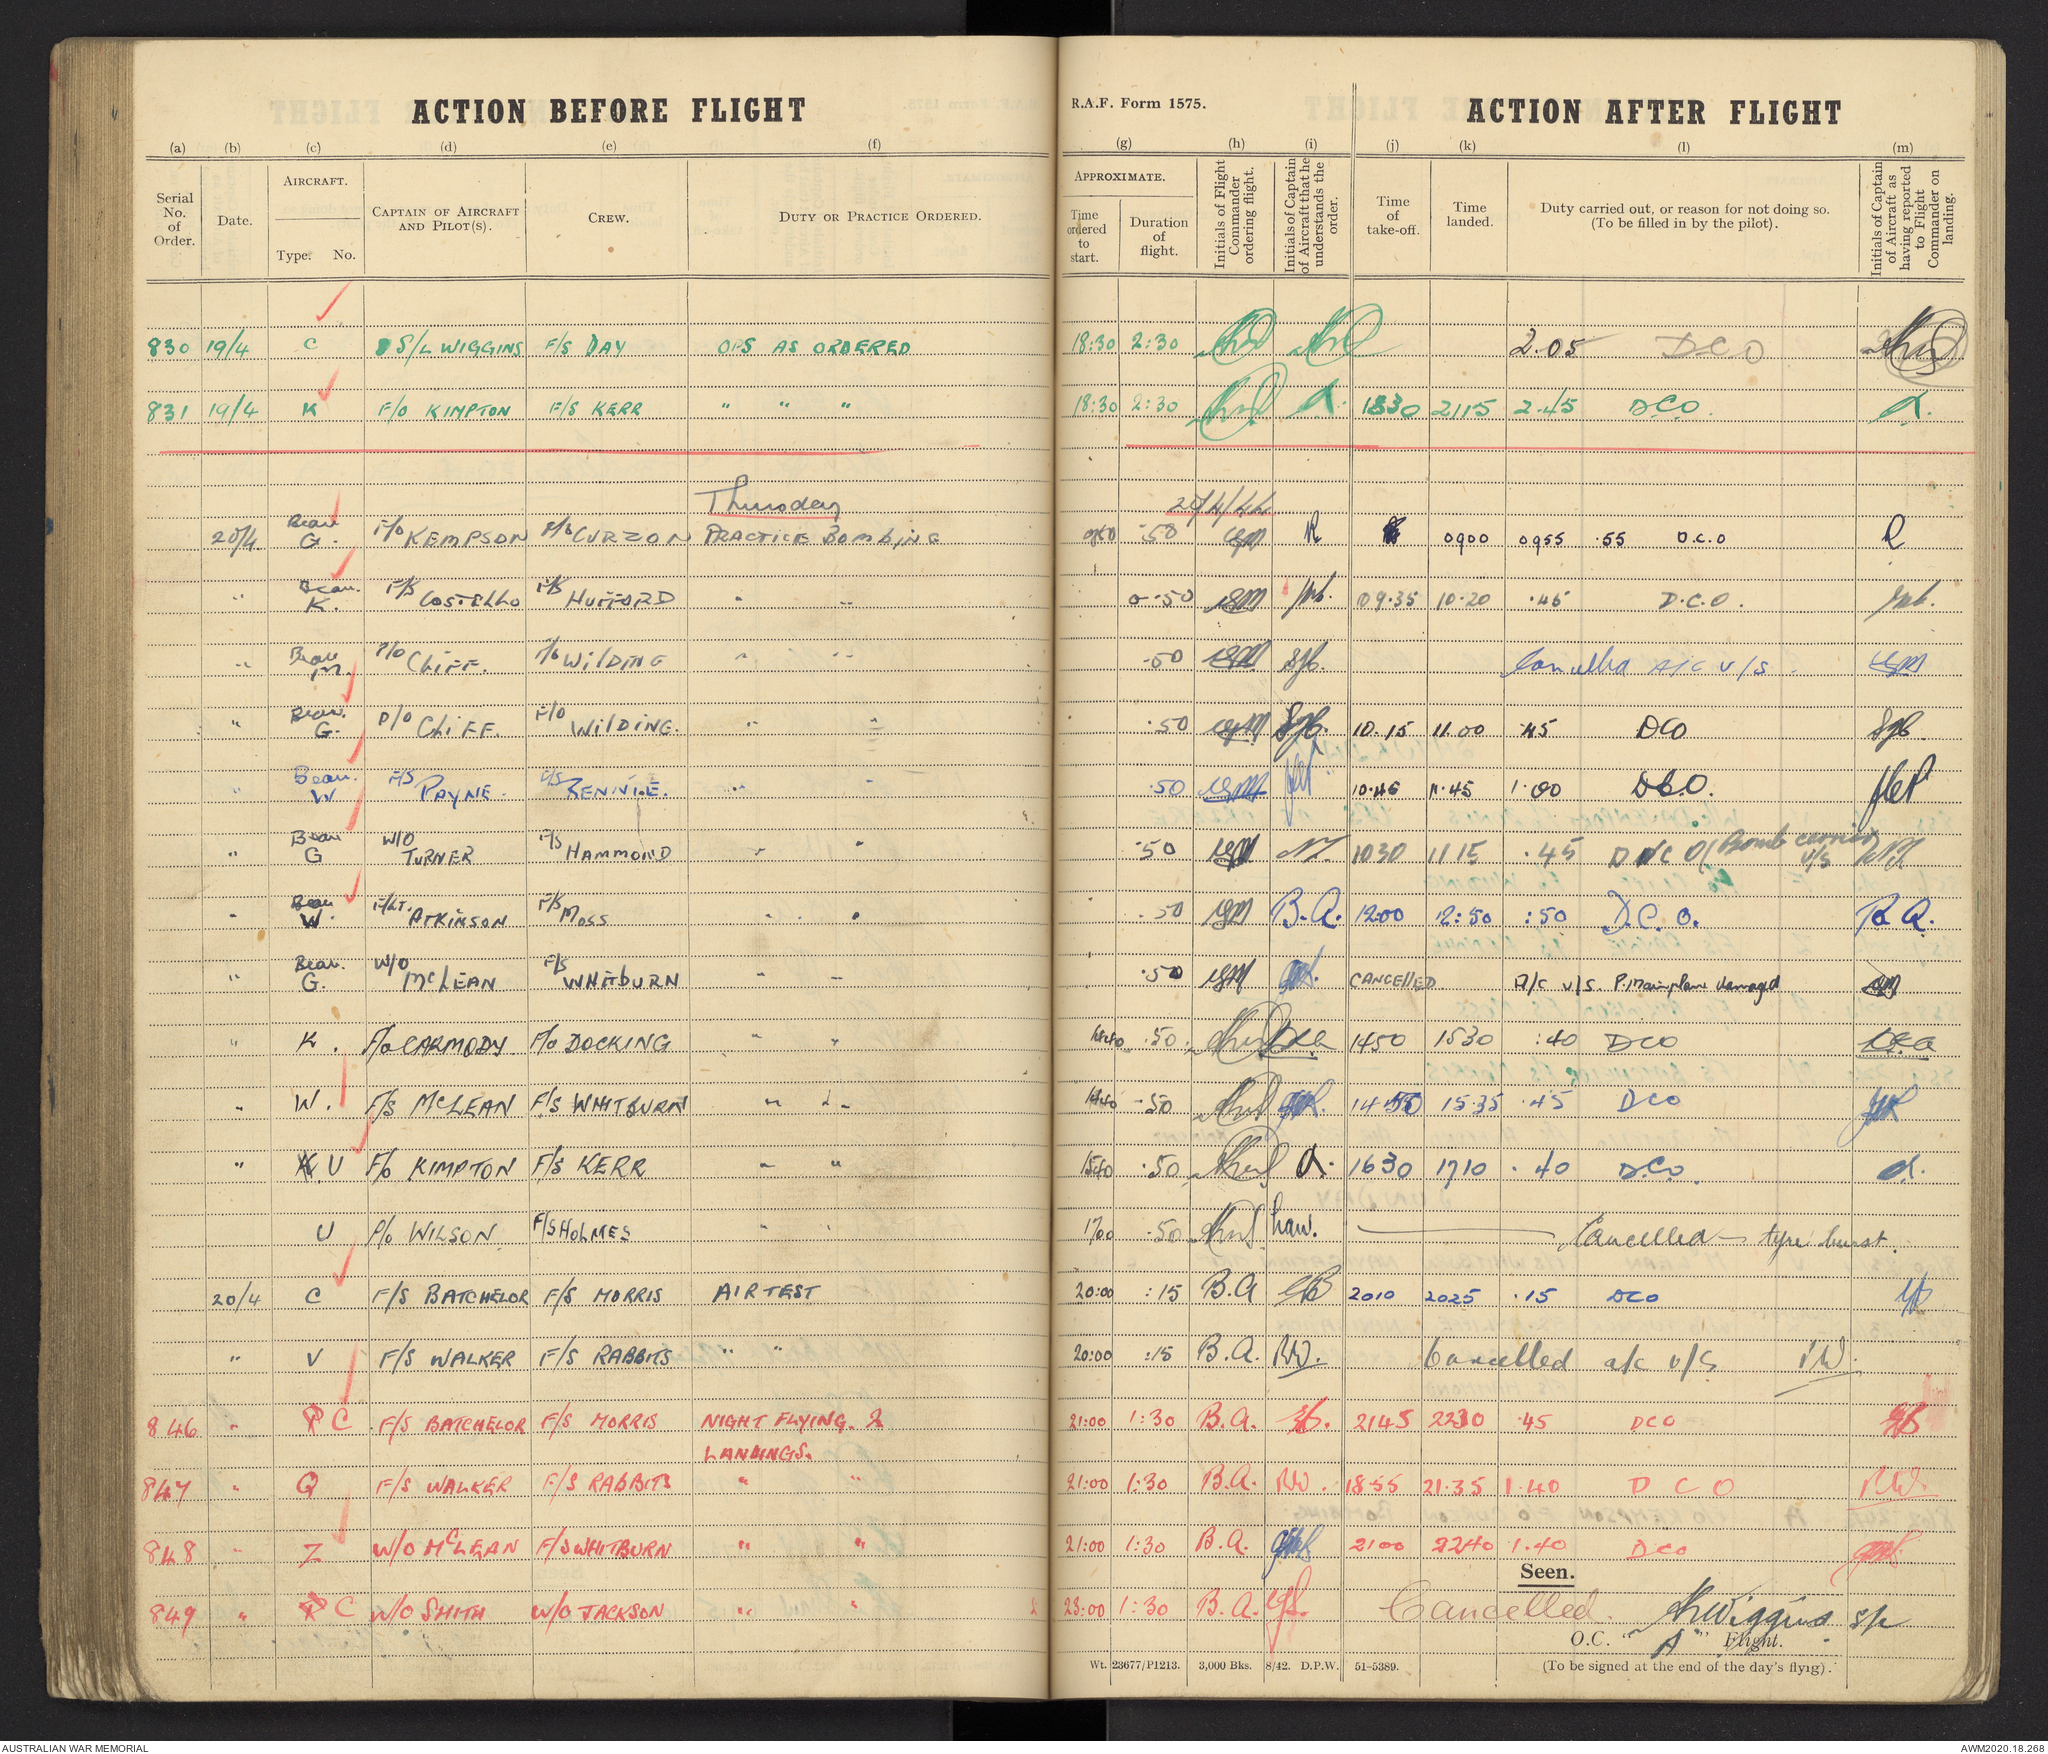 ACTION BEFORE FLIGHT
R.A.F. Form 1575.
ACTION AFTER FLIGHT
(a) (b) (c) (d) (e) (f) (g) (h) (i) (j) (k) (l) (m)
Serial No. of Order.
Date.
AIRCRAFT.
Type. No.
CAPTAIN OF AIRCRAFT AND PILOT(S).
CREW.
DUTY OR PRACTICE ORDERED.
APPROXIMATE.
Time ordered to start.
Duration of flight.
Initials of Flight Commander ordering flight.
Initials of Captain of Aircraft that he understands the order.
Time of take-off.
Time landed.
Duty carried out, or reason for not doing so. (To be filled in by the pilot).
Initials of Captain of Aircraft as having reported to Flight Commander on landing.
830 19/4 C S/L WIGGINS F/S DAY OPS AS ORDERED 18:30 2:30 2.05 DCO
831 19/4 K F/O KIMPTON F/S KERR " " " 18:30 2:30 1830 2115 2.45 DCO.
Thursday 20/4/44
20/4. Beau G. F/O KEMPSON F/O CURZON PRACTICE BOMBING .50 0900 0955 .55 D.C.O
" Beau. K. F/S COSTELLO F/S HUFFORD " " 0.50 09.35 10.20 .45 D.C.O.
" Beau M. P/O CLIFF. F/O WILDING " " .50 Cancelled A/C U/S.
" Beau. G. P/O CLIFF. F/O WILDING. " " .50 10.15 11.00 .45 DCO
" Beau. W F/S PAYNE. F/S RENNIE. " " .50 10.45 11.45 1.00 D.C.O.
" Beau G W/O TURNER F/S HAMMOND " " .50 1030 1115 .45 DNCO (Bomb carrier U/S
" Beau W. F/LT. ATKINSON F/S MOSS " " .50 B.A. 12.00 12:50 :50 D.C.O. B.A.
" Beau. G. W/O McLEAN F/S WHITBURN " " .50 CANCELLED A/C U/S. P. Mainplane damaged
" K. F/O CARMODY F/O DOCKING " " 1440 .50 1450 1530 :40 DCO
" W. F/S McLEAN F/S WHITBURN " " 1440 .50 1450 1535 .45 DCO
" U F/O KIMPTON F/S KERR " " 1540 .50 1630 1710 .40 D.C.O.
U P/O WILSON F/S HOLMES " " 1700 .50 Cancelled – tyre burst.
20/4 C F/S BATCHELOR F/S MORRIS AIR TEST 20:00 :15 B.A 2010 2025 .15 DCO
" V F/S WALKER F/S RABBITS " " 20:00 :15 B.A. RW. Cancelled a/c U/S RW.
846 " C F/S BATCHELOR F/S MORRIS NIGHT FLYING. 2 21:00 1:30 B.A. 2145 2230 .45 DCO
LANDINGS.
847 " Q F/S WALKER F/S RABBITS " " 21:00 1:30 B.A. RW. 18.55 21.35 1.40 D C O RW.
848 " Z W/O McLEAN F/S WHITBURN " " 21:00 1:30 B.A. 2100 2240 1.40 DCO
Seen.
849 " C W/O SMITH W/O JACKSON " " 23:00 1:30 B.A. Cancelled. Wiggins S/L
O.C. "A" Flight.
Wt. 23677/P1213. 3,000 Bks. 8/42. D.P.W. 51-5389. (To be signed at the end of the day's flying).
AUSTRALIAN WAR MEMORIAL
AWM2020.18.268